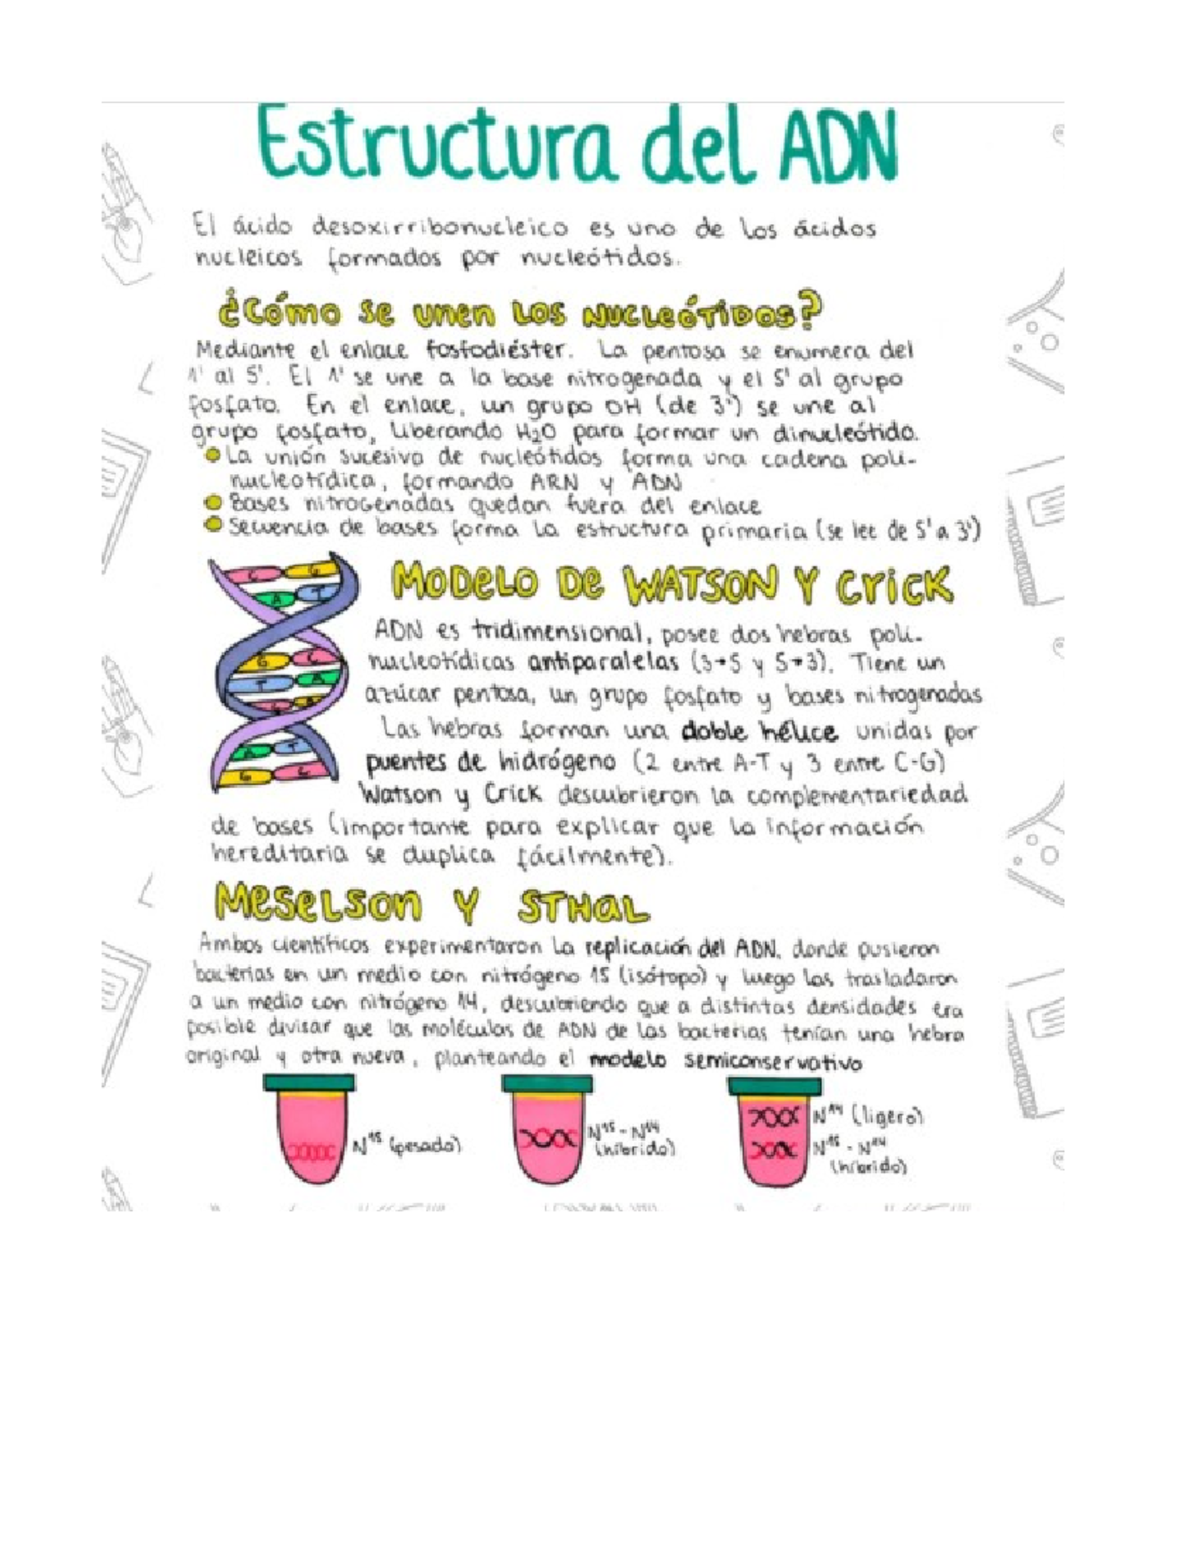 Estructura del ADN
El ácido desoxirribonucleico es uno de los ácidos
nucleicos formados por nucleótidos.
¿Cómo se unen los nucleótidos?
Mediante el enlace fosfodiéster. La pentosa se enumera del
1' al 5'. El 1' se une a la base nitrogenada y el 5' al grupo
fosfato. En el enlace, un grupo OH (de 3') se une al
grupo fosfato, liberando H₂O para formar un dinucleótido.
La unión sucesiva de nucleótidos forma una cadena poli-
nucleotídica, formando ARN y ADN
Bases nitrogenadas quedan fuera del enlace
Secuencia de bases forma la estructura primaria (se lee de 5' a 3')
Modelo de Watson y Crick
ADN es tridimensional, posee dos hebras poli-
nucleotídicas antiparalelas (3→5 y 5→3). Tiene un
azúcar pentosa, un grupo fosfato y bases nitrogenadas
Las hebras forman una doble hélice unidas por
puentes de hidrógeno (2 entre A-T y 3 entre C-G)
Watson y Crick descubrieron la complementariedad
de bases (importante para explicar que la información
hereditaria se duplica fácilmente).
C G
A T
G C
T A
A T
G C
Meselson y Sthal
Ambos científicos experimentaron la replicación del ADN, donde pusieron
bacterias en un medio con nitrógeno 15 (isótopo) y luego las trasladaron
a un medio con nitrógeno 14, descubriendo que a distintas densidades era
posible divisar que las moléculas de ADN de las bacterias tenían una hebra
original y otra nueva, planteando el modelo semiconservativo
N¹⁵ (pesado)
N¹⁵-N¹⁴
(híbrido)
N¹⁴ (ligero)
N¹⁵-N¹⁴
(híbrido)